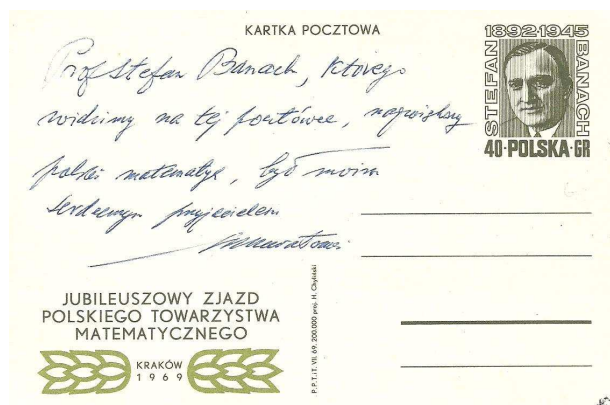 KARTKA POCZTOWA
1892·1945
STEFAN
BANACH
40·POLSKA·GR
Prof Stefan Banach, którego
widzimy na tej pocztówce, największy
polski matematyk, był moim
serdecznym przyjacielem
JUBILEUSZOWY ZJAZD
POLSKIEGO TOWARZYSTWA
MATEMATYCZNEGO
KRAKÓW
1969
P.P.T.iT. VII. 69. 200.000 proj. H. Chyliński